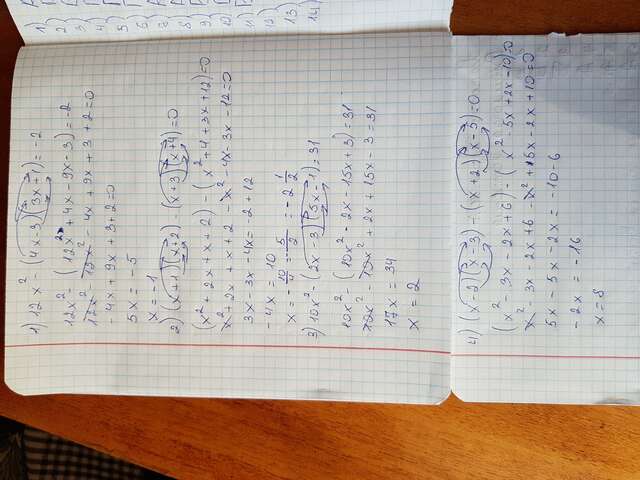 1) 12x² - (4x - 3)(3x + 1) = -2
12x² - (12x² + 4x - 9x - 3) = -2
12x² - 12x² - 4x + 9x + 3 + 2 = 0
-4x + 9x + 3 + 2 = 0
5x = -5
x = -1
2) (x+1)(x+2) - (x+3)(x+4) = 0
(x² + 2x + x + 2) - (x² + 4 + 3x + 12) = 0
x² + 2x + x + 2 - x² - 4x - 3x - 12 = 0
3x - 3x - 4x = -2 + 12
-4x = 10
x = -10/4 = -5/2 = -2 1/2
3) 10x² - (2x - 3)(5x - 1) = 31
10x² - (10x² - 2x - 15x + 3) = 31
10x² - 10x² + 2x + 15x - 3 = 31
17x = 34
x = 2
4) (x - 2)(x - 3) - (x + 2)(x - 5) = 0
(x² - 3x - 2x + 6) - (x² - 5x + 2x - 10) = 0
x² - 3x - 2x + 6 - x² + 5x - 2x + 10 = 0
5x - 5x - 2x = -10 - 6
-2x = -16
x = 8
1)
2)
3)
4)
5)
6)
7)
8)
9)
10)
11)
12)
13)
14)